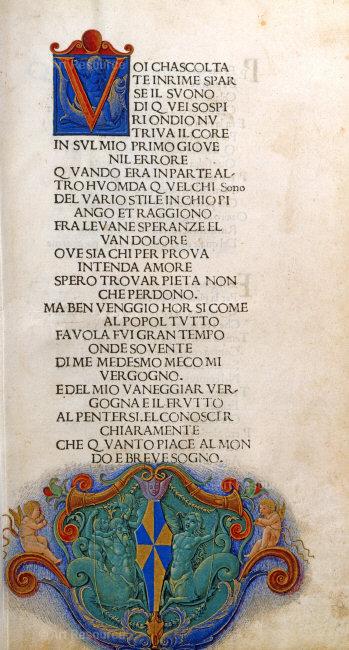 VOI CHASCOLTA
TE INRIME SPAR
SE IL SVONO
DI QVEI SOSPI
RI ONDIO NV
TRIVA IL CORE
IN SVL MIO PRIMO GIOVE
NIL ERRORE
QVANDO ERA IN PARTE AL
TRO HVOM DA QVEL CHI Sono
DEL VARIO STILE IN CHIO PI
ANGO ET RAGGIONO
FRA LE VANE SPERANZE EL
VAN DOLORE
OVE SIA CHI PER PROVA
INTENDA AMORE
SPERO TROVAR PIETA NON
CHE PERDONO.
MA BEN VENGGIO HOR SI COME
AL POPOL TVTTO
FAVOLA FVI GRAN TEMPO
ONDE SOVENTE
DI ME MEDESMO MECO MI
VERGOGNO.
E DEL MIO VANEGGIAR VER-
GOGNA E IL FRVTTO
AL PENTERSI. EL CONOSCIR
CHIARAMENTE
CHE QVANTO PIACE AL MON
DO E BREVE SOGNO.
Art Resource